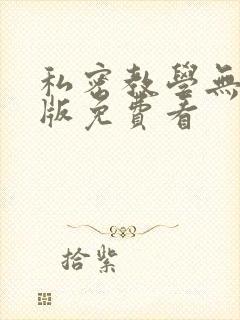 私密教學無
版免費看
拾紫